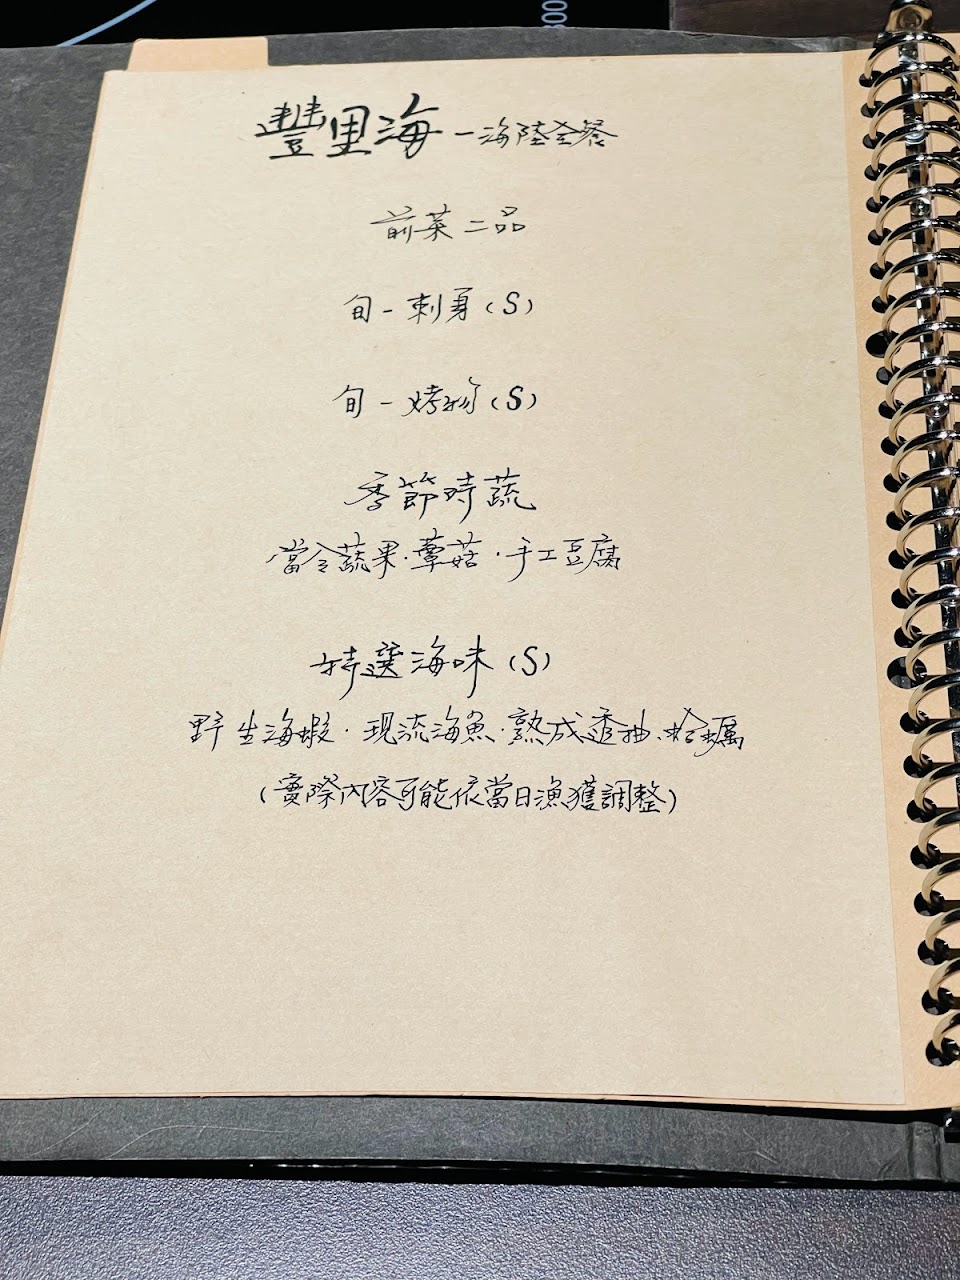 00
豐里海－海陸全餐
前菜二品
旬－刺身(S)
旬－烤物(S)
季節時蔬
當令蔬果·蕈菇·手工豆腐
特選海味(S)
野生海蝦·現流海魚·熟成透抽·牡蠣
(實際內容可能依當日漁獲調整)